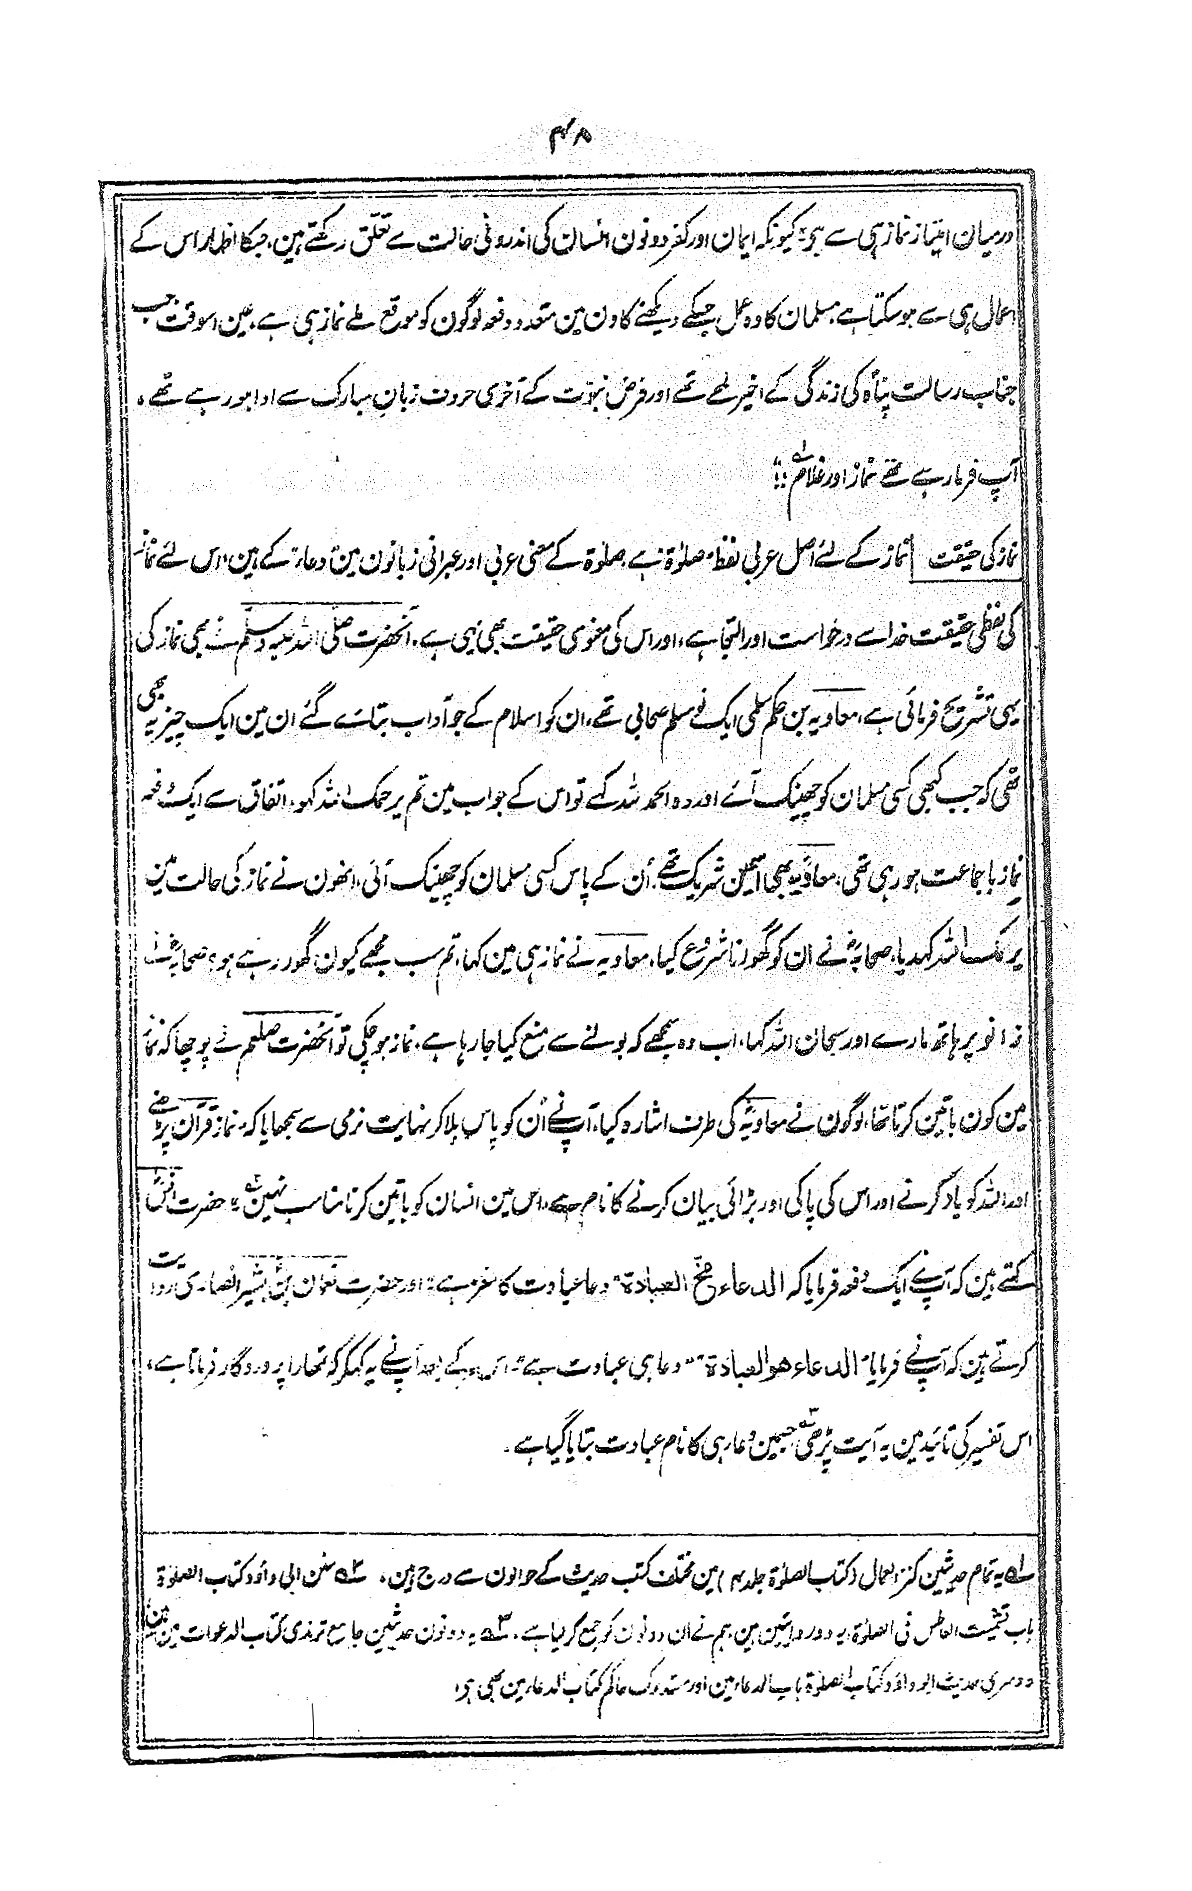 ۴۸
درمیان امتیاز نماز ہی سے ہے، کیونکہ ایمان اور کفر دونون انسان کی اندرونی حالت سے تعلق رکھتے ہین، جسکا اظہار اس کے
اعمال ہی سے ہوسکتا ہے، مسلمان کا وہ عمل جسکے دیکھنے کا دن مین متعدد دفعہ لوگون کو موقع ملے نماز ہی ہے، عین اسوقت جب
جناب رسالت پناہؐ کی زندگی کے اخیر لمحے تھے اور فرض نبوت کے آخری حروف زبان مبارک سے ادا ہو رہے تھے،
آپ فرما رہے تھے نماز اور غلام ؎۱"
نماز کی حقیقت نماز کے لئے اصل عربی لفظ "صلوٰۃ" ہے، صلوٰۃ کے معنی عربی اور عبرانی زبانون مین "دعاء" کے ہین، اس لئے نماز
کی لفظی حقیقت خدا سے درخواست اور التجا ہے، اور اس کی معنوی حقیقت بھی یہی ہے، آنحضرت صلی اللہ علیہ وسلم نے بھی نماز کی
یہی تشریح فرمائی ہے، معاویہ بن حکم سلمی ایک نو مسلم صحابی تھے، ان کو اسلام کے جو آداب بتائے گئے ان مین ایک چیز یہ بھی
تھی کہ جب کبھی کسی مسلمان کو چھینک آئے اور وہ الحمد للہ کہے تو اس کے جواب مین تم یرحمک اللہ کہو، اتفاق سے ایک دفعہ
نماز با جماعت ہو رہی تھی، معاویہؓ بھی اسمین شریک تھے، اُن کے پاس کسی مسلمان کو چھینک آئی، انھون نے نماز کی حالت مین
یرحمک اللہ کہدیا، صحابہؓ نے ان کو گھورنا شروع کیا، معاویہ نے نماز ہی مین کہا، تم سب مجھے کیون گھور رہے ہو؟ صحابہؓ نے
زانو پر ہاتھ مارے اور سبحان اللہ کہا، اب وہ سمجھے کہ بولنے سے منع کیا جا رہا ہے، نماز ہو چکی تو آنحضرت صلعم نے پوچھا کہ نماز
مین کون باتین کرتا تھا، لوگون نے معاویہؓ کی طرف اشارہ کیا، آپنے اُن کو پاس بلا کر نہایت نرمی سے سمجھایا کہ "نماز قرآن پڑھنے
اور اللہ کو یاد کرنے اور اس کی پاکی اور بڑائی بیان کرنے کا نام ہے، اس مین انسان کو باتین کرنا مناسب نہین ؎۲" حضرت انسؓ
کہتے ہین کہ آپنے ایک دفعہ فرمایا کہ الدعاء مخ العبادۃ "دعا عبادت کا مغز ہے" اور حضرت نعمان بن بشیر انصاری روایت
کرتے ہین کہ آپنے فرمایا "الدعاء ھو العبادۃ" "دعا ہی عبادت ہے" اس کے بعد آپنے یہ کہکر کہ تمھارا پروردگار فرماتا ہے،
اس تفسیر کی تائید مین یہ آیت پڑھی ؎۳ جسمین دعا ہی کا نام عبادت بتایا گیا ہے۔
؎۱ یہ تمام حدیثین کنز العمال (کتاب الصلوٰۃ جلد ۴) مین مختلف کتب حدیث کے حوالون سے درج ہین۔ ؎۲ سنن ابی داؤد کتاب الصلوٰۃ
باب تشمیت العاطس فی الصلوٰۃ، یہ دو روایتین ہین ہم نے ان دونون کو جمع کر لیا ہے، ؎۳ یہ دونون حدیثین جامع ترمذی کتاب الدعوات مین ہین
دوسری حدیث ابو داؤد کتاب الصلوٰۃ باب الدعاء مین اور مستدرک حاکم کتاب الدعاء مین بھی ہی،